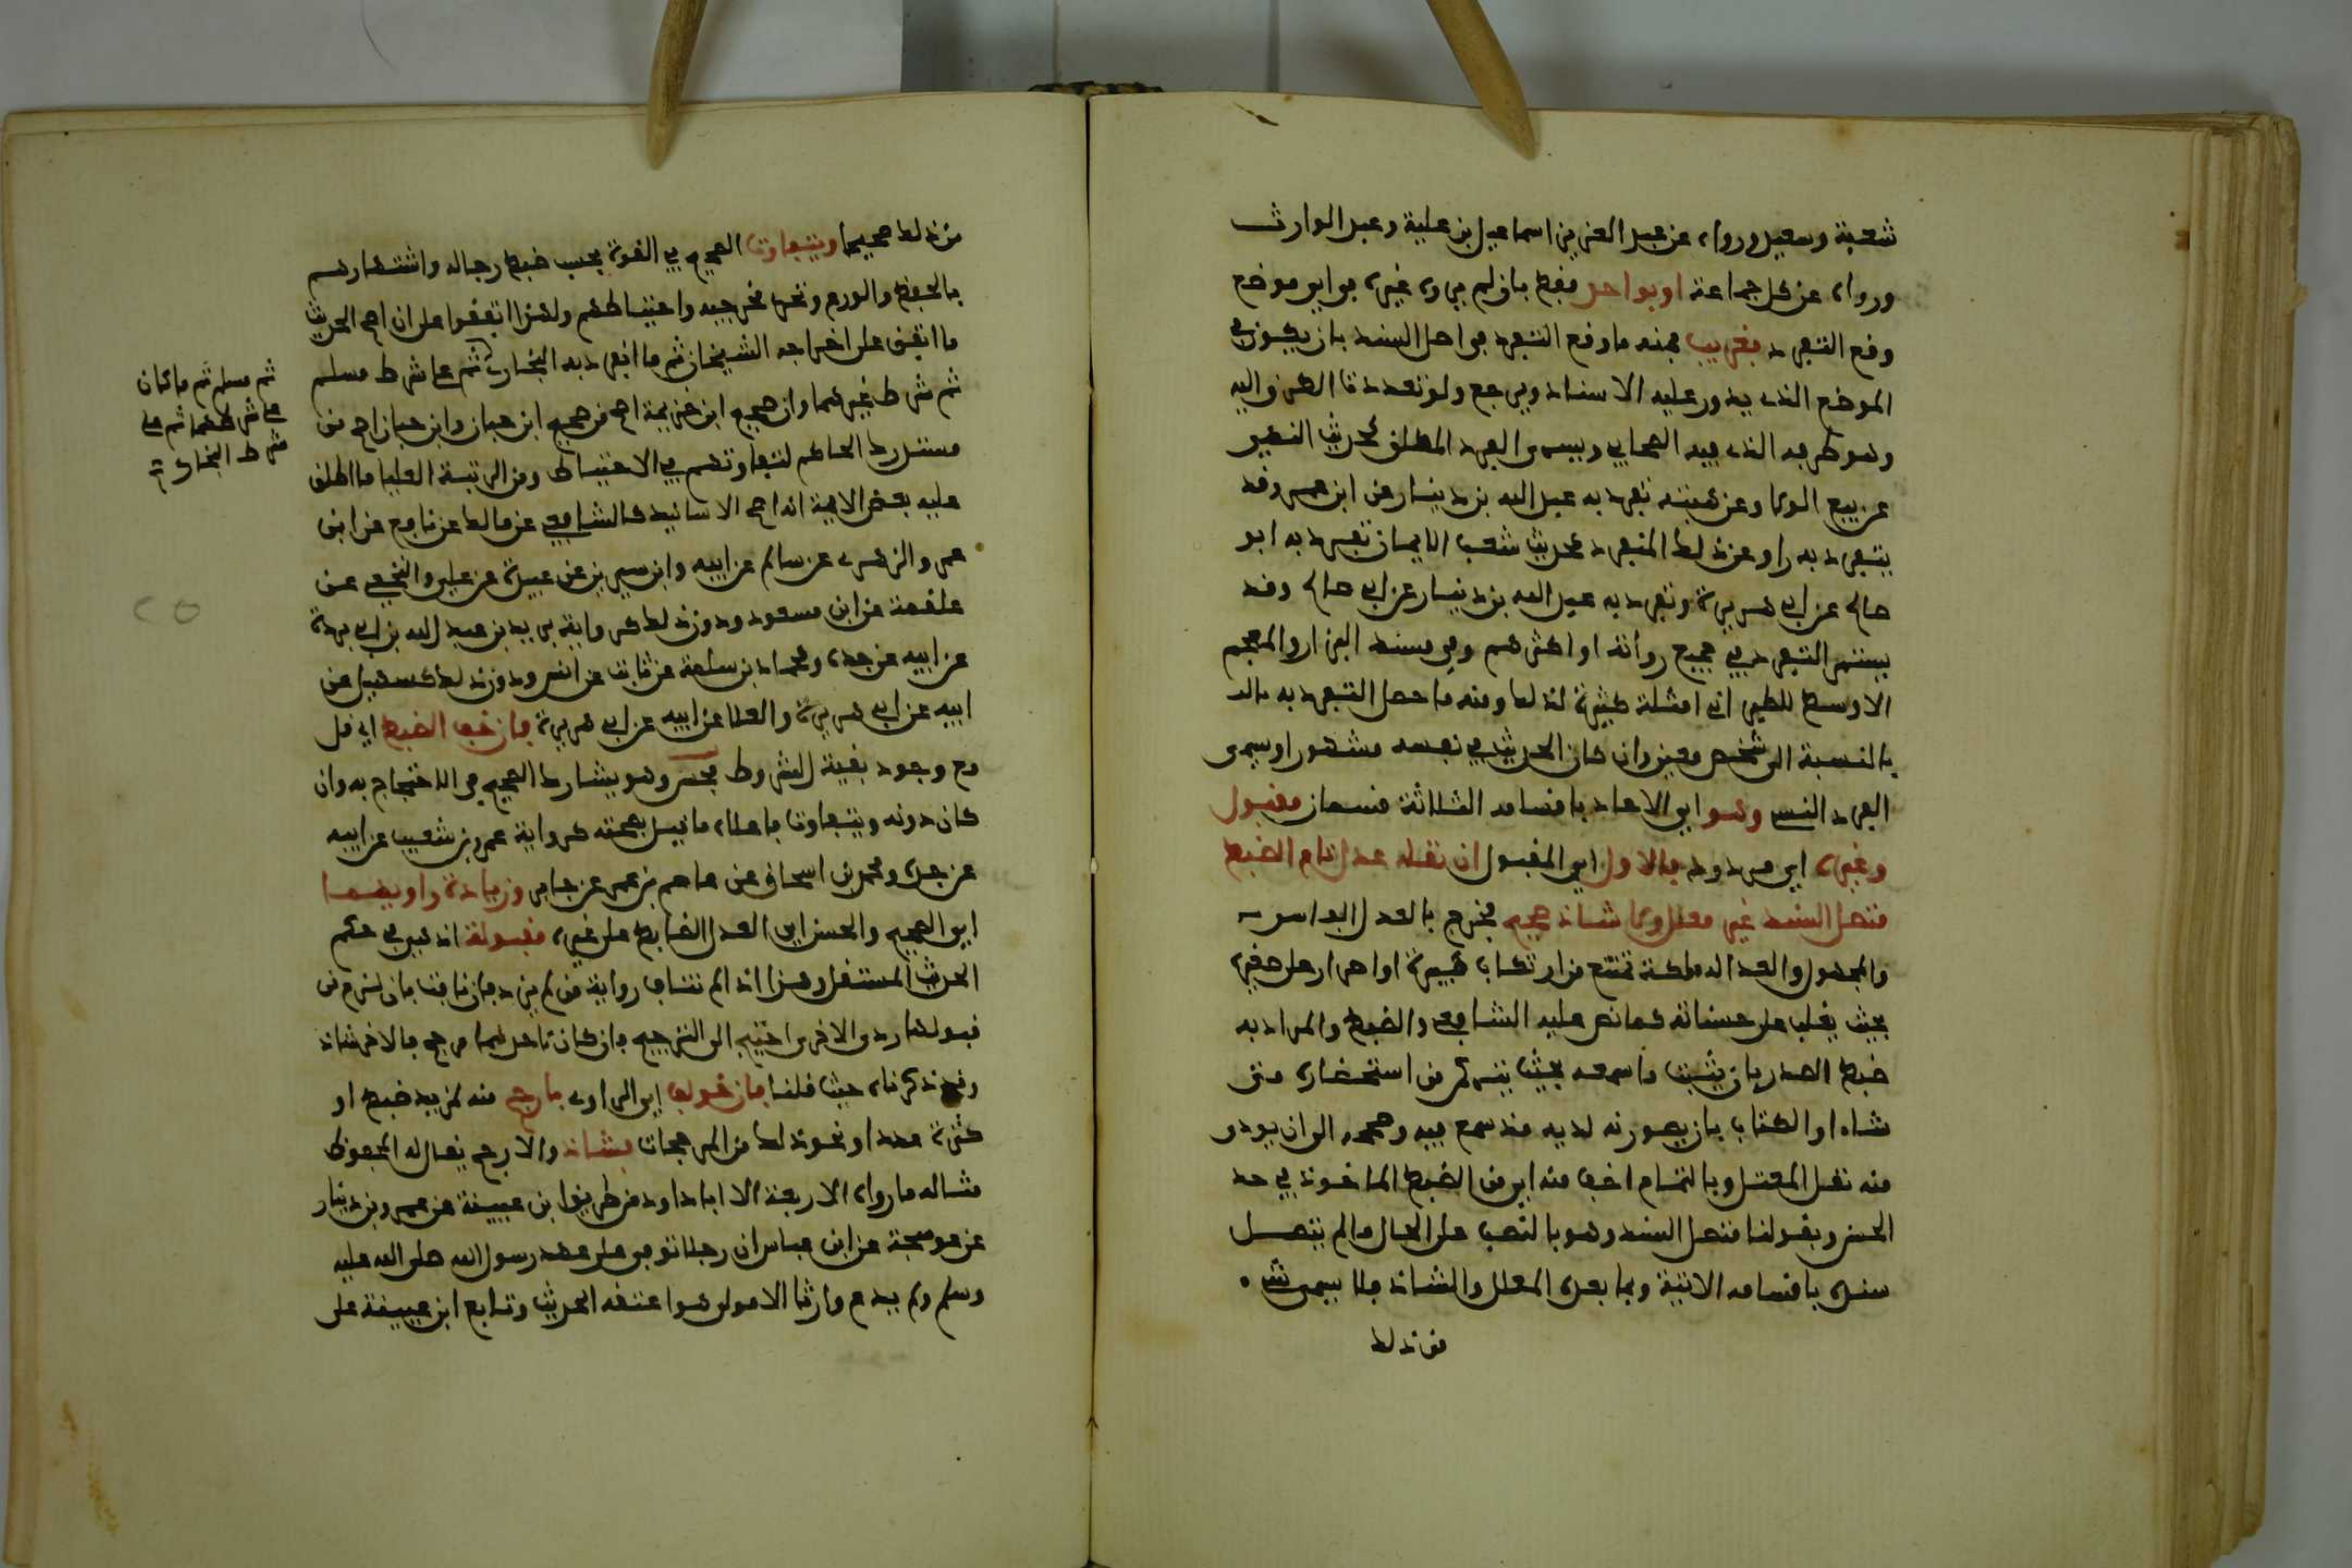 شعبة وسعيد ورواه عن عبد العزيز اسماعيل بن علية وعبد الوارث
ورواه عن كل جماعة او بواحد فقط بان لم يروه غيره في اي موضع
وقع التفرد فغريب فمنه ما وقع التفرد في اصل السند بان يكون في
الموضع الذي يدور عليه الاسناد ويرجع ولو تعددت الطرق اليه
وهو طرفه الذي فيه الصحابي ويسمى الفرد المطلق كحديث النهي
عن بيع الولا وعن هبته تفرد به عبد الله بن دينار عن ابن عمر وقد
يتفرد به راو عن ذلك المتفرد كحديث شعب الايمان تفرد به ابو
صالح عن ابي هريرة وتفرد به عبد الله بن دينار عن ابي صالح وقد
يستمر التفرد في جميع رواته او اكثرهم وفي مسند البزار والمعجم
الاوسط للطبراني امثلة كثيرة لذلك ومنه ما حصل التفرد به
بالنسبة الى شخص معين وان كان الحديث في نفسه مشهورا ويسمى
الفرد النسبي وهو اي الاحاد باقسامه الثلاثة قسمان مقبول
وغيره اي مردود فالاول اي المقبول ان نقله عدل تام الضبط
متصل السند غير معلل ولا شاذ صحيح فخرج بالعدل الفاسق
والمجهول والعدالة ملكة تمنع من ارتكاب كبيرة او اصرار على صغيرة
بحيث يغلب على حسناته كما نص عليه الشافعي والضبط والمراد به
ضبط الصدر بان يثبت ما سمعه بحيث يتمكن من استحضاره متى
شاء او الكتاب بان يصونه لديه منذ سمع فيه وصححه الى ان يودي
منه نقل المغفل وبالتمام اخف منه اي من الضبط الماخوذ في حد
الحسن وبقولنا متصل السند وهو بالنصب على الحال ما لم يتصل
سنده باقسامه الاتية وبما بعده المعلل والشاذ فلا يسمى شي
من ذلك
من ذلك صحيحا ويتفاوت الصحيح في القوة بحسب ضبط رجاله واشتهارهم
بالحفظ والورع وتحري مخرجيه واحتياطهم ولهذا اتفقوا على ان اصح الحديث
ما اتفق على اخراجه الشيخان ثم ما انفرد به البخاري ثم على شرط مسلم
ثم شرط غيرهما وان صحيح ابن خزيمة اصح من صحيح ابن حبان وابن حبان اصح من
مستدرك الحاكم لتفاوتهم في الاحتياط ومن الرتبة العليا ما اطلق
عليه بعض الايمة انه اصح الاسانيد كالشافعي عن مالك عن نافع عن ابن
عمر والزهري عن سالم عن ابيه وابن سيرين عن عبيدة عن علي والنخعي عن
علقمة عن ابن مسعود ودون ذلك كرواية بريد بن عبد الله بن ابي بردة
عن ابيه عن جده وحماد بن سلمة عن ثابت عن انس ودون ذلك كسهيل عن
ابيه عن ابي هريرة والعلا عن ابيه عن ابي هريرة فان خف الضبط اي قل
مع وجود بقية الشروط فحسن وهو يشارك الصحيح في الاحتجاج به وان
كان دونه ويتفاوت فاعلاه ما قيل بصحته كرواية عمرو بن شعيب عن ابيه
عن جده ومحمد بن اسحاق عن عاصم بن عمر عن جابر وزيادة راويهما
اي الصحيح والحسن اي العدل الضابط على غيره مقبولة اذ هي في حكم
الحديث المستقل وهذا اذ لم تناف رواية من لم يزد فان نافت بان لزم من
قبولها رد الاخرى احتيج الى الترجيح فان كان لاحدهما مرجح فالاخر شاذ
وقد ذكرناه حيث قلنا فان خولف اي الراوي بارجح منه لمزيد ضبط او
كثرة عدد او نحو ذلك من المرجحات فشاذ والارجح يقال له المحفوظ
مثاله ما رواه الاربعة الا ابا داود من طريق ابن عيينة عن عمرو بن دينار
عن عوسجة عن ابن عباس ان رجلا توفي على عهد رسول الله صلى الله عليه
وسلم ولم يدع وارثا الا مولى هو اعتقه الحديث وتابع ابن عيينة على
ثم مسلم ثم ما كان
على شرطهما ثم على
شرط البخاري